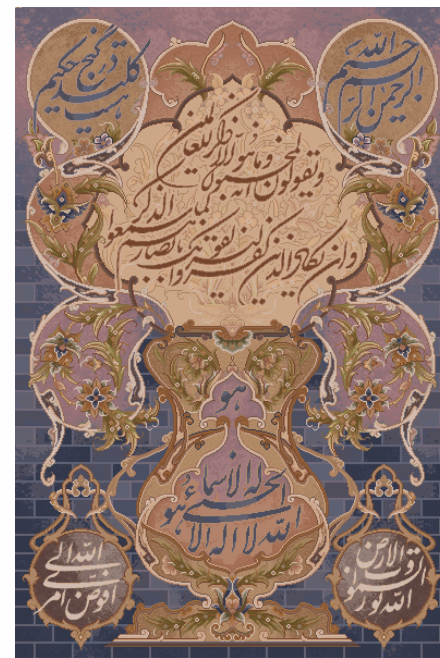 بسم الله
الرحمن الرحیم
هست کلید
در گنج حکیم
وان یکاد الذین کفروا لیزلقونک بابصارهم
لما سمعوا الذکر
ویقولون انه لمجنون
وما هو الا ذکر للعالمین
هو
الله لا اله الا هو
له الأسماء الحسنی
افوض امری
الی الله
الله نور السموات
والارض